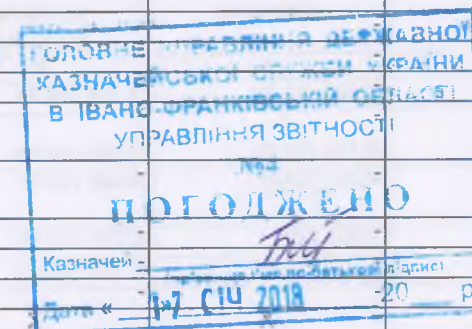 ГОЛОВНЕ УПРАВЛІННЯ ДЕРЖАВНОЇ
КАЗНАЧЕЙСЬКОЇ СЛУЖБИ УКРАЇНИ
В ІВАНО-ФРАНКІВСЬКІЙ ОБЛАСТІ
УПРАВЛІННЯ ЗВІТНОСТІ
ПОГОДЖЕНО
Казначей
Дата « 17 СІЧ 2018 20 р